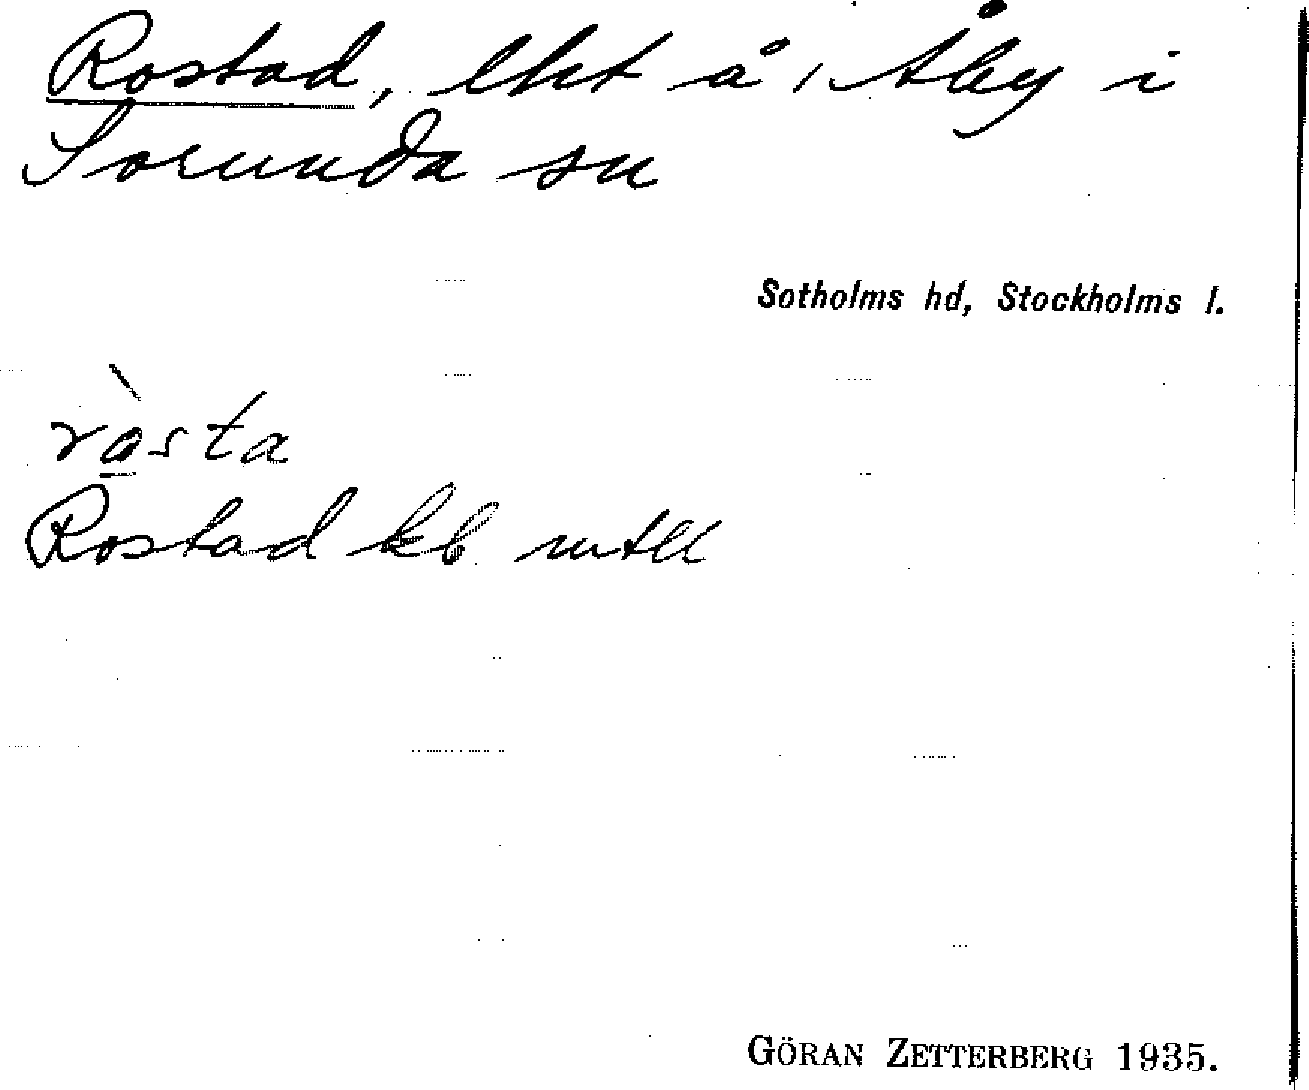 Rostad, lht å 1 Åby i
Sorunda sn
Sotholms hd, Stockholms l.
ròsta
Rostad kb mtll
GÖRAN ZETTERBERG 1935.